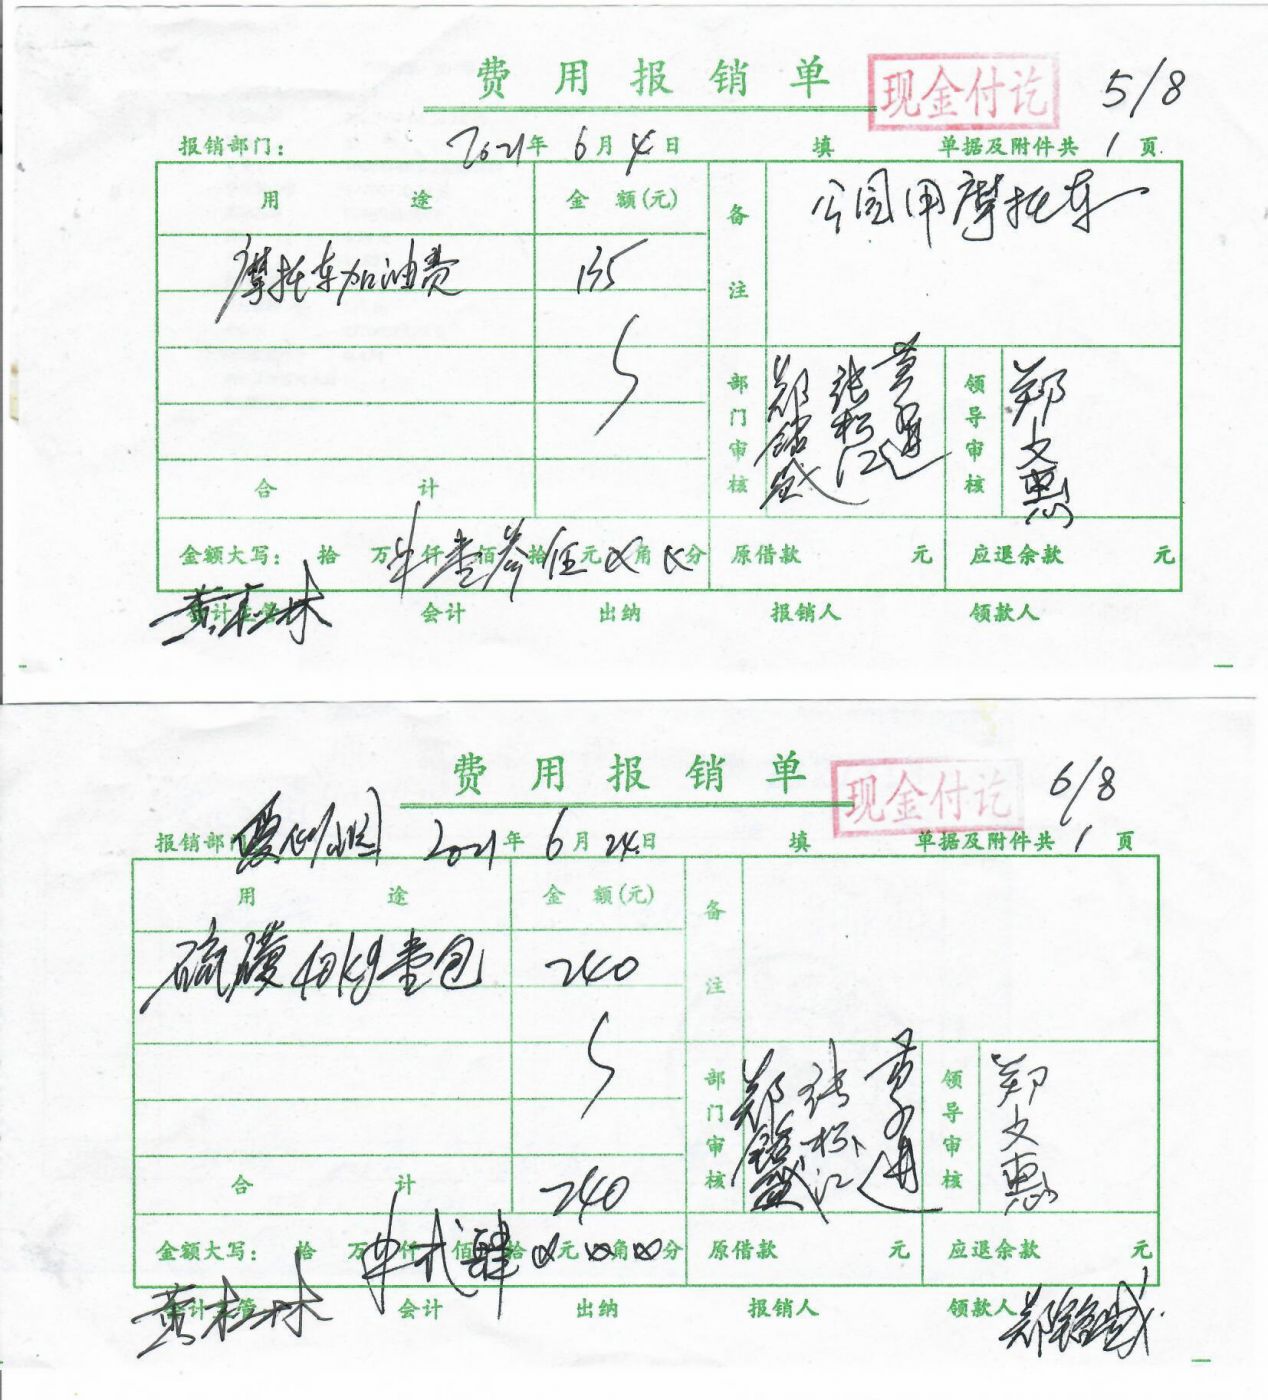 费用报销单 现金付讫 5/8
报销部门： 2021年6月4日 填 单据及附件共1页
用途 金额(元) 备注 公园用摩托车
摩托车加油费 135
部门审核 张松江 领导审核 郑文惠
合计
金额大写： 拾万仟壹佰叁拾伍元角分 原借款 元 应退余款 元
会计主管 黄桂林 会计 出纳 报销人 领款人
费用报销单 现金付讫 6/8
报销部门 2021年6月24日 填 单据及附件共1页
用途 金额(元) 备注
硫磺40kg壹包 240
部门审核 张松江 领导审核 郑文惠
合计 240
金额大写： 拾万仟弍佰肆拾元角分 原借款 元 应退余款 元
会计主管 黄桂林 会计 出纳 报销人 领款人